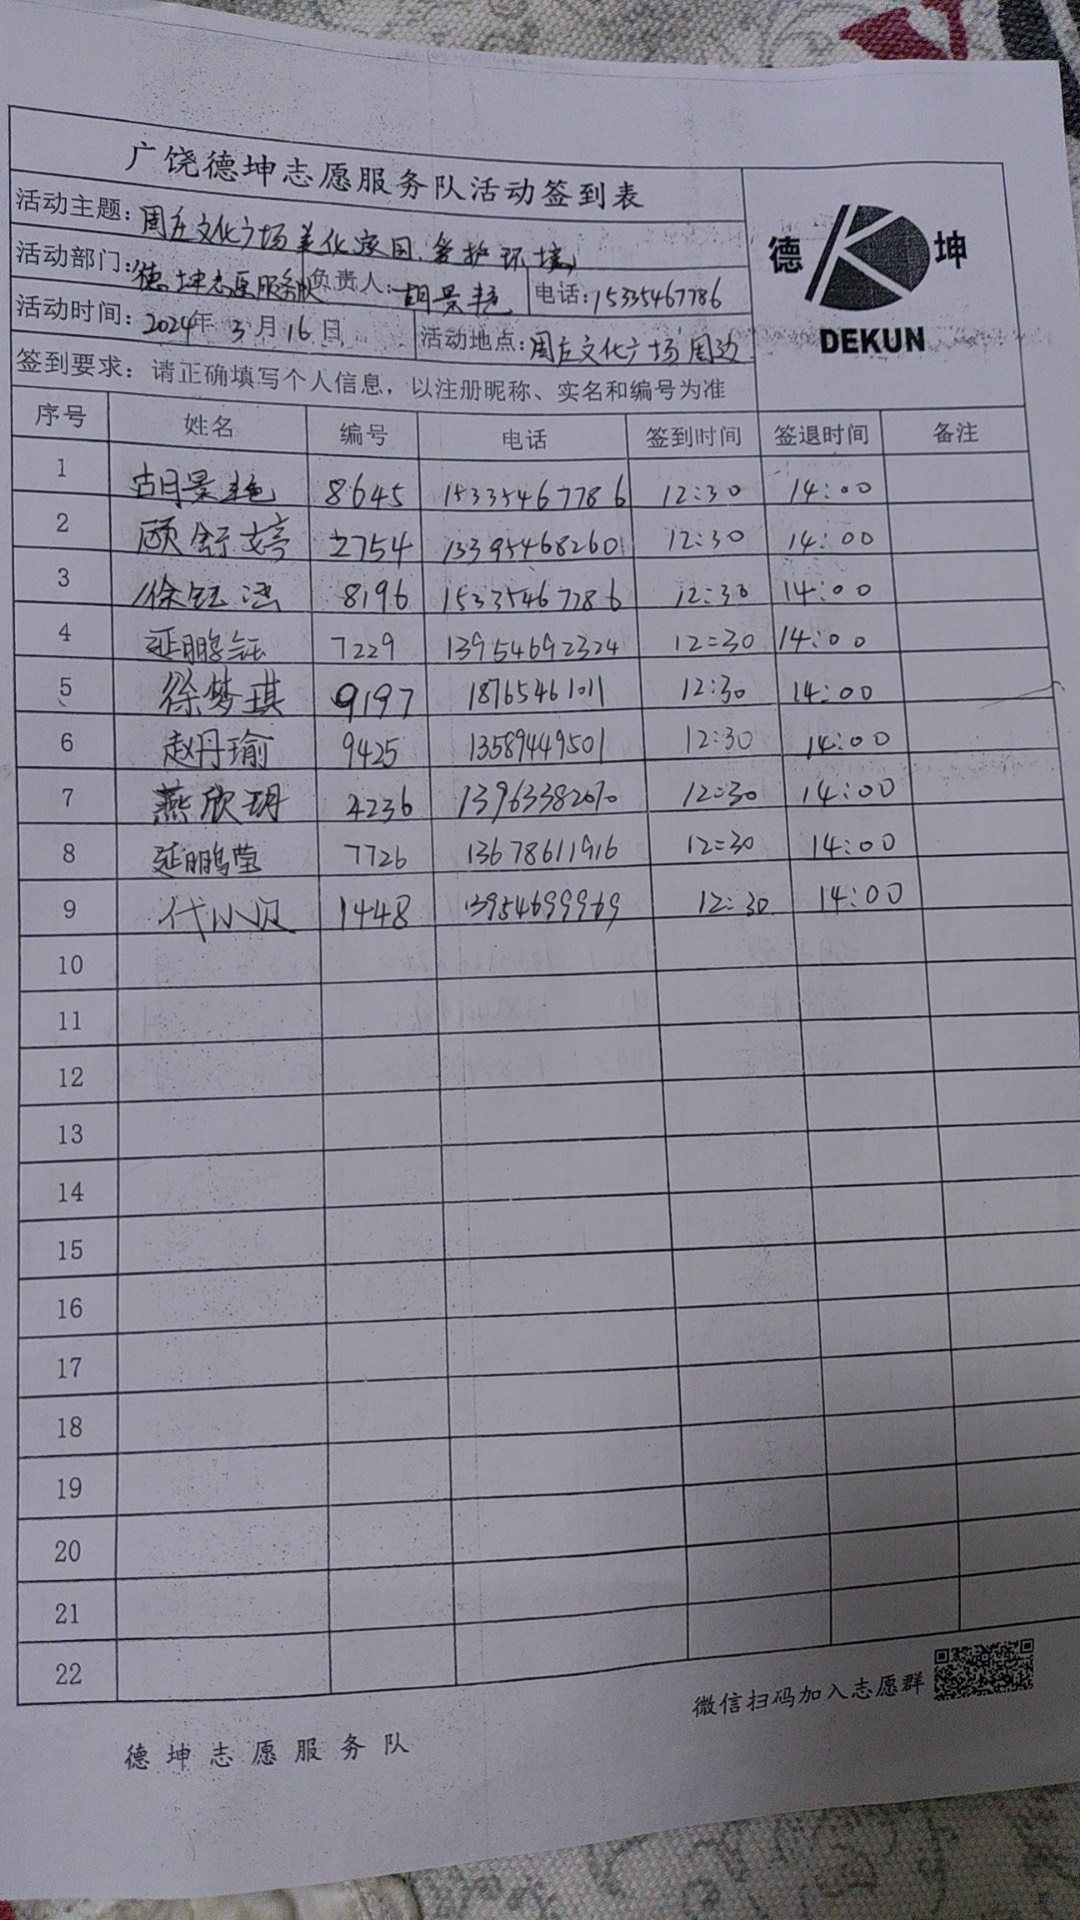 广饶德坤志愿服务队活动签到表
德 坤
DEKUN
活动主题：周庄文化广场美化家园、爱护环境
活动部门：德坤志愿服务队 负责人：胡景艳 电话：15335467786
活动时间：2024年3月16日 活动地点：周庄文化广场周边
签到要求：请正确填写个人信息，以注册昵称、实名和编号为准
序号 姓名 编号 电话 签到时间 签退时间 备注
1 胡景艳 8645 15335467786 12:30 14:00
2 顾舒婷 2754 13395468260 12:30 14:00
3 徐钰涵 8196 15335467786 12:30 14:00
4 延鹏钰 7229 13954692324 12:30 14:00
5 徐梦琪 9197 18765461011 12:30 14:00
6 赵丹瑜 9425 13589449501 12:30 14:00
7 燕欣玥 4236 13963382070 12:30 14:00
8 延鹏莹 7726 13678611916 12:30 14:00
9 代小贝 1448 13954699969 12:30 14:00
10
11
12
13
14
15
16
17
18
19
20
21
22
微信扫码加入志愿群
德坤志愿服务队